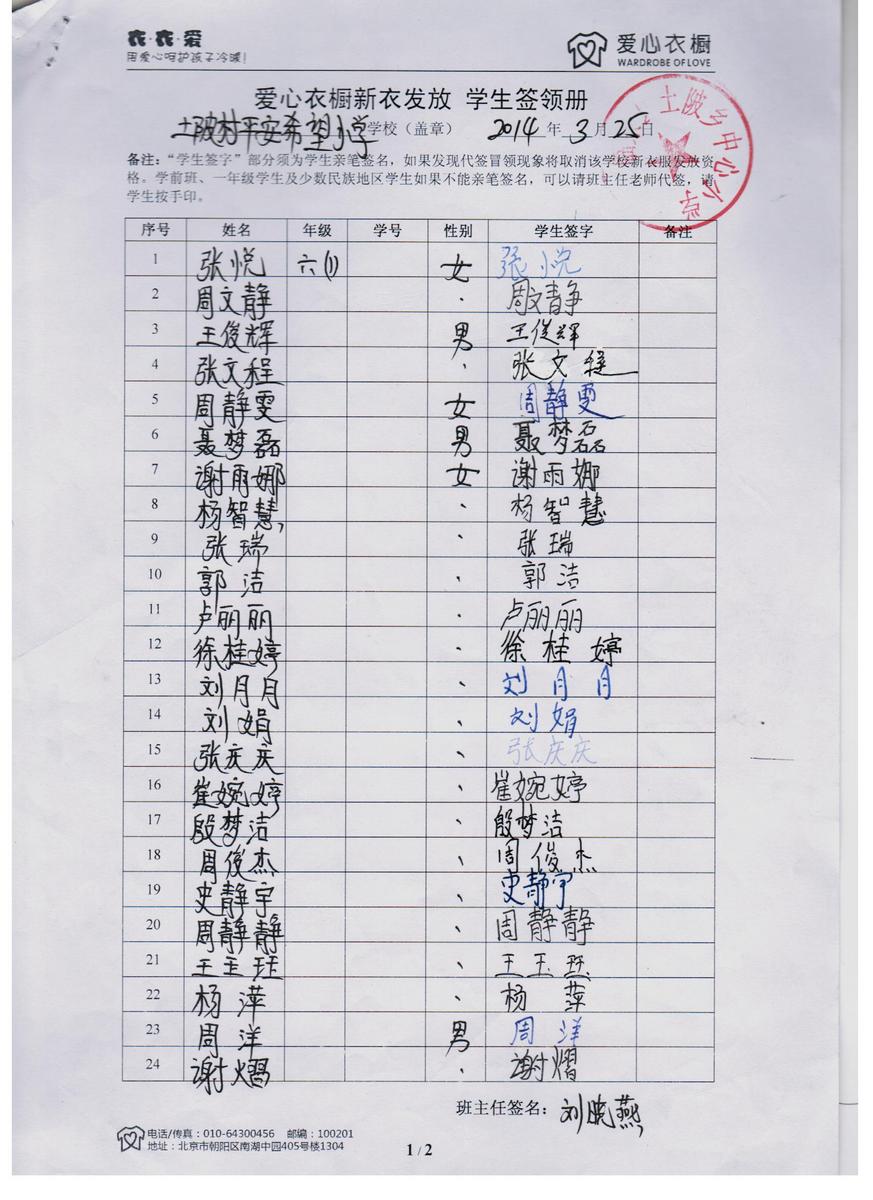 衣·衣·爱
用爱心呵护孩子冷暖!
爱心衣橱
WARDROBE OF LOVE
爱心衣橱新衣发放 学生签领册
土陂村平安希望小学学校（盖章） 2014年3月25日
土陂乡中心小学
备注：“学生签字”部分须为学生亲笔签名，如果发现代签冒领现象将取消该学校新衣服发放资
格。学前班、一年级学生及少数民族地区学生如果不能亲笔签名，可以请班主任老师代签，请
学生按手印。
序号 姓名 年级 学号 性别 学生签字 备注
1 张悦 六(1) 女 张悦
2 周文静 · 周文静
3 王俊辉 男 王俊辉
4 张文程 · 张文程
5 周静雯 女 周静雯
6 聂梦磊 男 聂梦磊
7 谢雨娜 女 谢雨娜
8 杨智慧 · 杨智慧
9 张瑞 · 张瑞
10 郭洁 · 郭洁
11 卢丽丽 · 卢丽丽
12 徐桂婷 、 徐桂婷
13 刘月月 、 刘月月
14 刘娟 、 刘娟
15 张庆庆 、 张庆庆
16 崔婉婷 、 崔婉婷
17 殷梦洁 、 殷梦洁
18 周俊杰 、 周俊杰
19 史静宇 、 史静宇
20 周静静 、 周静静
21 王玉珏 、 王玉珏
22 杨萍 、 杨萍
23 周洋 男 周洋
24 谢熠 · 谢熠
班主任签名：刘晓燕
电话/传真：010-64300456 邮编：100201
地址：北京市朝阳区南湖中园405号楼1304
1 / 2